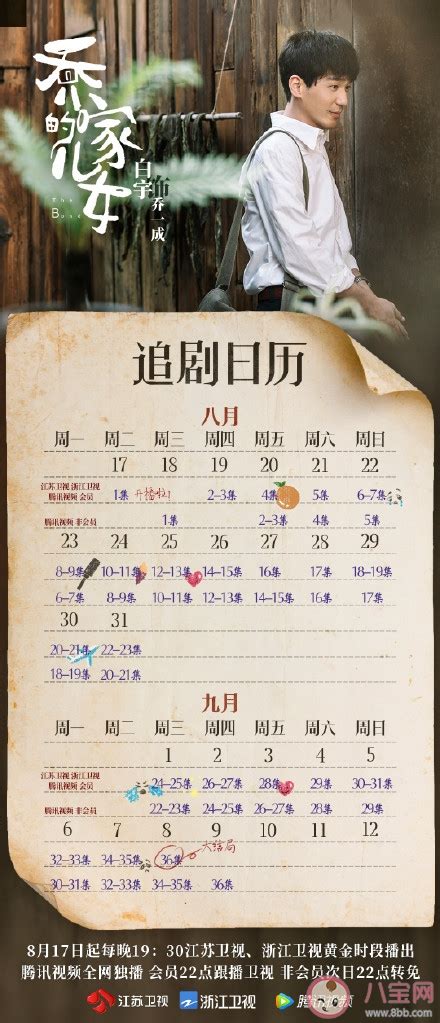 乔家的儿女
The
白宇 饰 乔一成
追剧日历
八月
周一 周二 周三 周四 周五 周六 周日
17 18 19 20 21 22
江苏卫视 浙江卫视
腾讯视频 会员 1集 开播啦! 2-3集 4集 5集 6-7集
腾讯视频 非会员 1集 2-3集 4集 5集
23 24 25 26 27 28 29
8-9集 10-11集 12-13集 14-15集 16集 17集 18-19集
6-7集 8-9集 10-11集 12-13集 14-15集 16集 17集
30 31
20-21集 22-23集
18-19集 20-21集
九月
周一 周二 周三 周四 周五 周六 周日
1 2 3 4 5
江苏卫视 浙江卫视
腾讯视频 会员 24-25集 26-27集 28集 29集 30-31集
腾讯视频 非会员 22-23集 24-25集 26-27集 28集 29集
6 7 8 9 10 11 12
大结局
32-33集 34-35集 36集
30-31集 32-33集 34-35集 36集
8月17日起每晚19：30江苏卫视、浙江卫视黄金时段播出
腾讯视频全网独播 会员22点跟播卫视 非会员次日22点转免
江苏卫视 浙江卫视 腾讯视频
八宝网
www.8bb.com